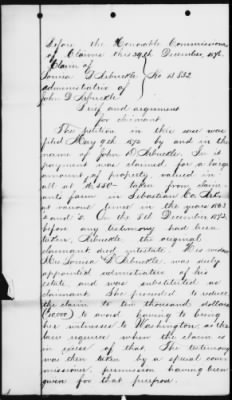 Before the Honorable Commissioners
of Claims this 29th December, 1876
Claim of
Louisa D Arbuckle } No. 13.832
administratrix of
John D Arbuckle
Brief and argument
for claimant.
The petition in this case was
filed May 9th 1872 by and in the
name of John D Arbuckle. In it
payment was claimed for a large
amount of property valued in
all at taken from claim-
ants farm in Sebastian Co. Ark
at various times the years 1863
4 and 5. On the 8th December 1872,
before any testimony had been
taken, Arbuckle the original
claimant died intestate. His widow
Mrs Louisa D Arbuckle was duly
appointed administratrix of his
estate and was substituted as
claimant. She proceeded to reduce
the claim to ten thousand dollars
(10.000) to avoid having to bring
her witnesses to Washington as the
law requires when the claim is
in excess of that. The testimony
was then taken by a special com-
missioner, permission having been
given for that purpose.